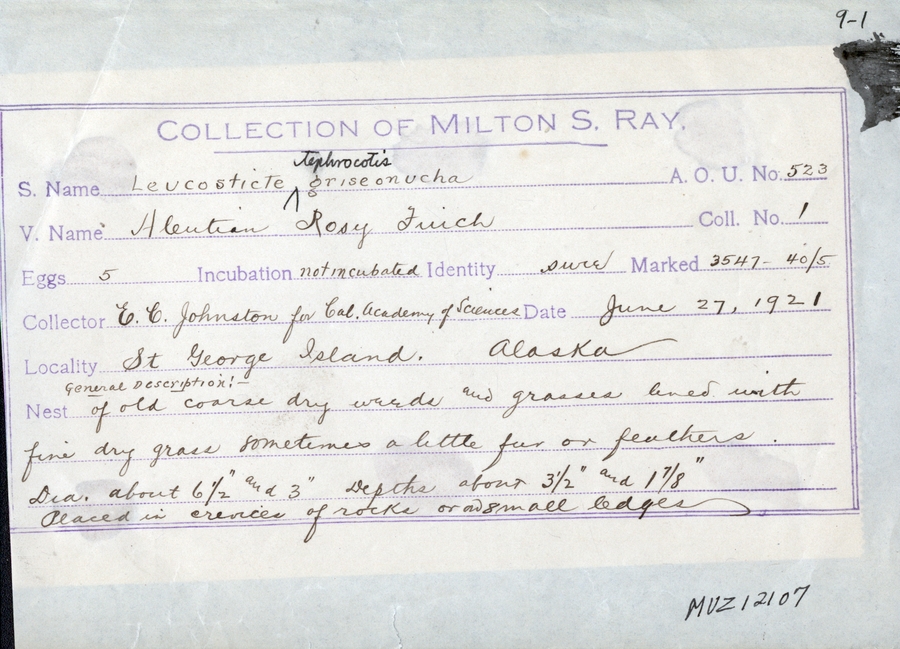 9-1
COLLECTION OF MILTON S. RAY.
tephrocotis
S. Name Leucosticte griseonucha A. O. U. No. 523
V. Name Aleutian Rosy Finch Coll. No. 1
Eggs 5 Incubation not incubated Identity sure Marked 3547- 40/5
Collector E. C. Johnston for Cal. Academy of Sciences Date June 27, 1921
Locality St George Island. Alaska
General Description:-
Nest of old coarse dry weeds and grasses lined with
fine dry grass sometimes a little fur or feathers.
Dia. about 6 1/2" and 3" Depths about 3 1/2" and 1 7/8"
Placed in crevices of rocks or small ledges
MVZ12107